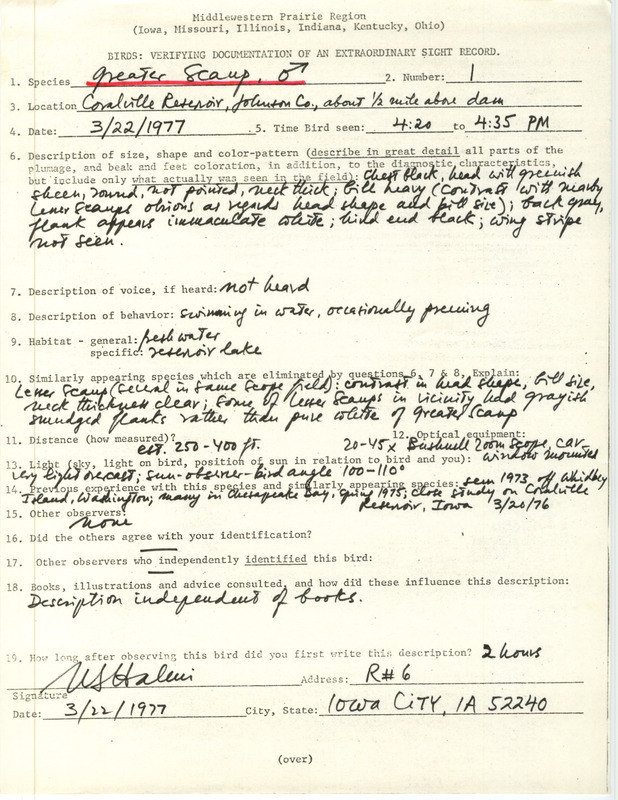 Middlewestern Prairie Region
(Iowa, Missouri, Illinois, Indiana, Kentucky, Ohio)
BIRDS: VERIFYING DOCUMENTATION OF AN EXTRAORDINARY SIGHT RECORD.
1. Species Greater Scaup, ♂ 2. Number: 1
3. Location Coralville Reservoir, Johnson Co., about ½ mile above dam
4. Date: 3/22/1977 .5. Time Bird seen: 4:20 to 4:35 PM
6. Description of size, shape and color-pattern (describe in great detail all parts of the
plumage, and beak and feet coloration, in addition, to the diagnostic characteristics,
but include only what actually was seen in the field): chest black, head with greenish
sheen, round, not pointed, neck thick; bill heavy (contrast with nearby
Lesser Scaups obvious as regards head shape and bill size); back gray,
flank appears immaculate white; hind end black; wing stripe
not seen.
7. Description of voice, if heard: not heard
8. Description of behavior: swimming in water, occasionally preening
9. Habitat - general: fresh water
specific: reservoir lake
10. Similarly appearing species which are eliminated by questions 6, 7 & 8, Explain:
Lesser Scaup (several in same scope field): contrast in head shape, bill size,
neck thickness clear; some of Lesser Scaups in vicinity had grayish
smudged flanks rather than pure white of Greater Scaup
11. Distance (how measured)? est. 250-400 ft. 12. Optical equipment:
20-45x Bushnell Zoom Scope, car
window mounted
13. Light (sky, light on bird, position of sun in relation to bird and you):
very light overcast; sun-observer-bird angle 100-110°
14. Previous experience with this species and similarly appearing species: seen 1973, off Whidbey
Island, Washington; many in Chesapeake Bay, spring 1975; close study on Coralville
Reservoir, Iowa 3/20/76
15. Other observers:
none
16. Did the others agree with your identification?
17. Other observers who independently identified this bird:
18. Books, illustrations and advice consulted, and how did these influence this description:
Description independent of books.
19. How long after observing this bird did you first write this description? 2 hours
Address: R#6
Signature
Date: 3/22/1977 City, State: Iowa City, IA 52240
(over)